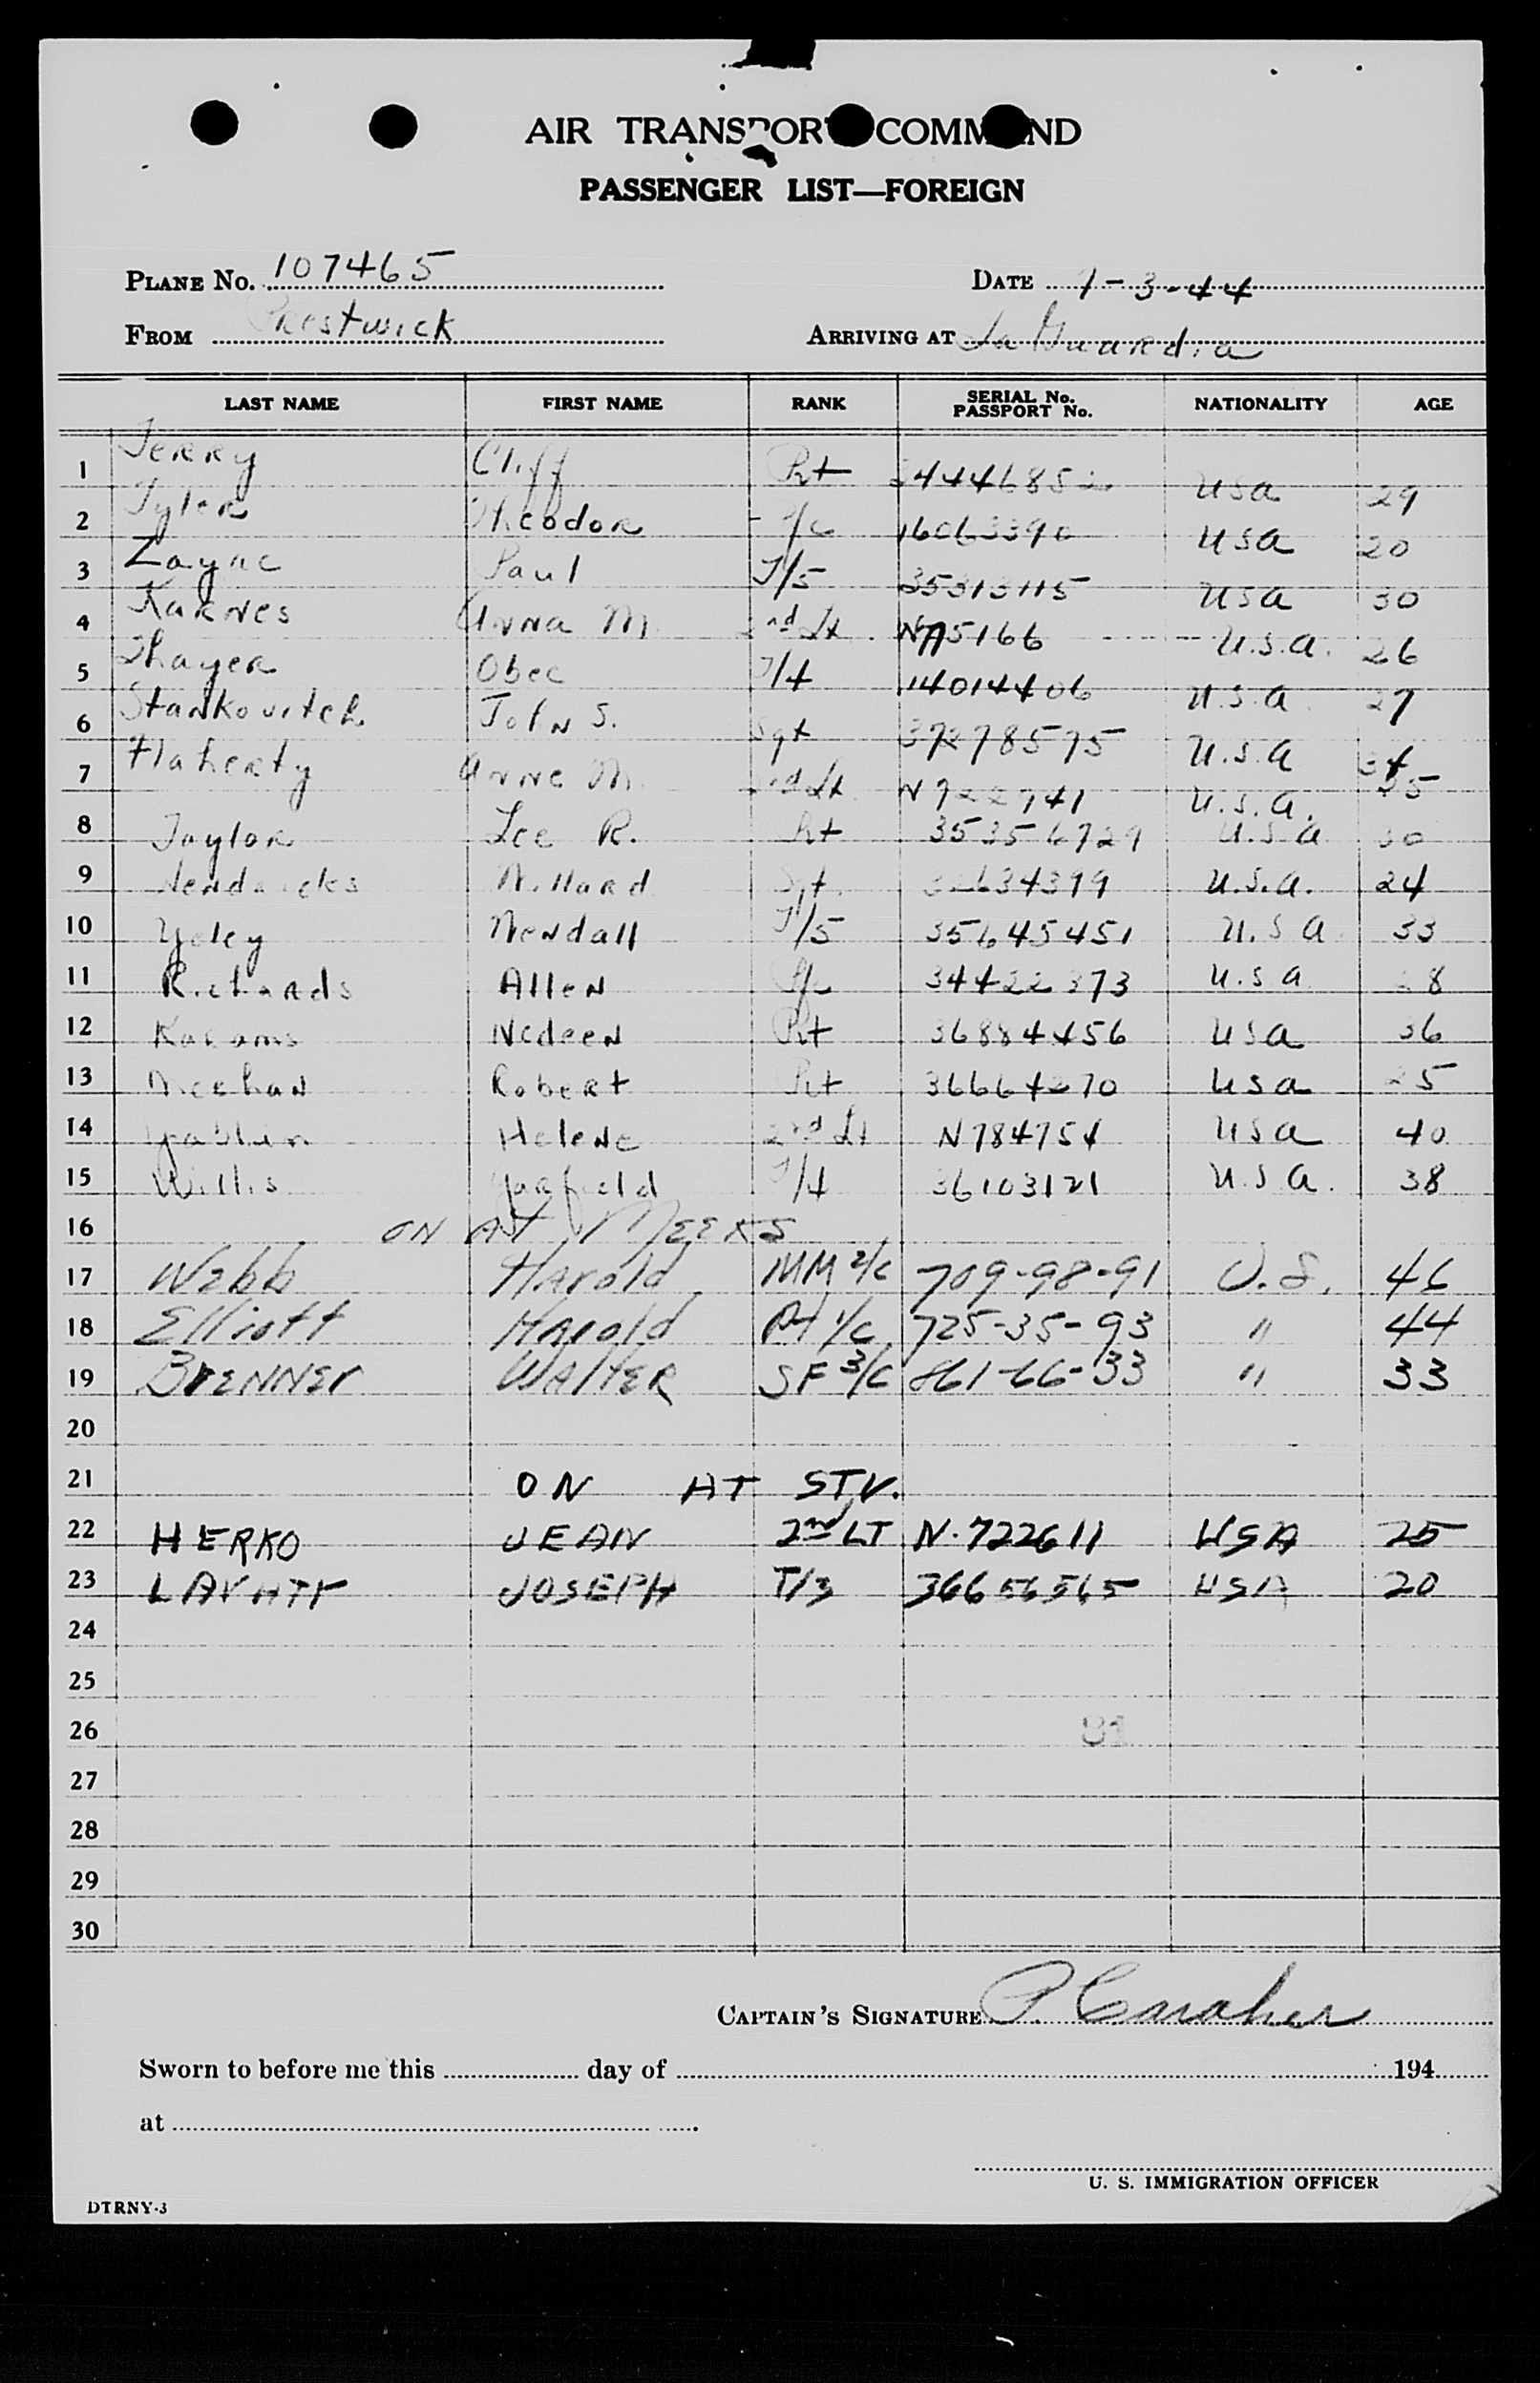 AIR TRANSPORT COMMAND
PASSENGER LIST—FOREIGN
PLANE No. 107465 DATE 7-3-44
FROM Prestwick ARRIVING AT La Guardia
LAST NAME FIRST NAME RANK SERIAL No. PASSPORT No. NATIONALITY AGE
1 Terry Cliff Pvt 34446852 USA 29
2 Tyler Theodore Pfc 16063390 USA 20
3 Zayac Paul T/5 35313115 USA 30
4 Karnes Anna M. 2nd Lt N775166 U.S.A. 26
5 Thayer Obec T/4 14014406 U.S.A. 27
6 Stankovitch John S. Sgt 37278575 U.S.A 34
7 Flaherty Anne M. 2nd Lt N722741 U.S.A. 25
8 Taylor Lee R. Pvt 35356729 U.S.A 30
9 Hendricks Willard Sgt. 32634399 U.S.A. 24
10 Yoley Wendall T/5 35645451 U.S A 33
11 Richards Allen Pfc 34422373 U.S A 28
12 Nedeen Pvt 36884456 USA 36
13 Meehan Robert Pvt 36664270 USA 25
14 Helene 2nd Lt N784754 USA 40
15 Willis Garfield T/4 36103121 U.S A. 38
16 ON AT MEEKS
17 Webb Harold MM 2/C 709-98-91 U.S. 46
18 Elliott Harold Pt 1/C 725-35-93 " 44
19 BrENNEr WAlTER SF 3/C 861-66-33 " 33
20
21 ON AT STV.
22 HERKO JEAN 2nd LT N.722611 USA 25
23 JOSEPH T/3 36656565 USA 20
24
25
26 81
27
28
29
30
CAPTAIN'S SIGNATURE P. Caraher
Sworn to before me this day of 194
at
U. S. IMMIGRATION OFFICER
DTRNY-3